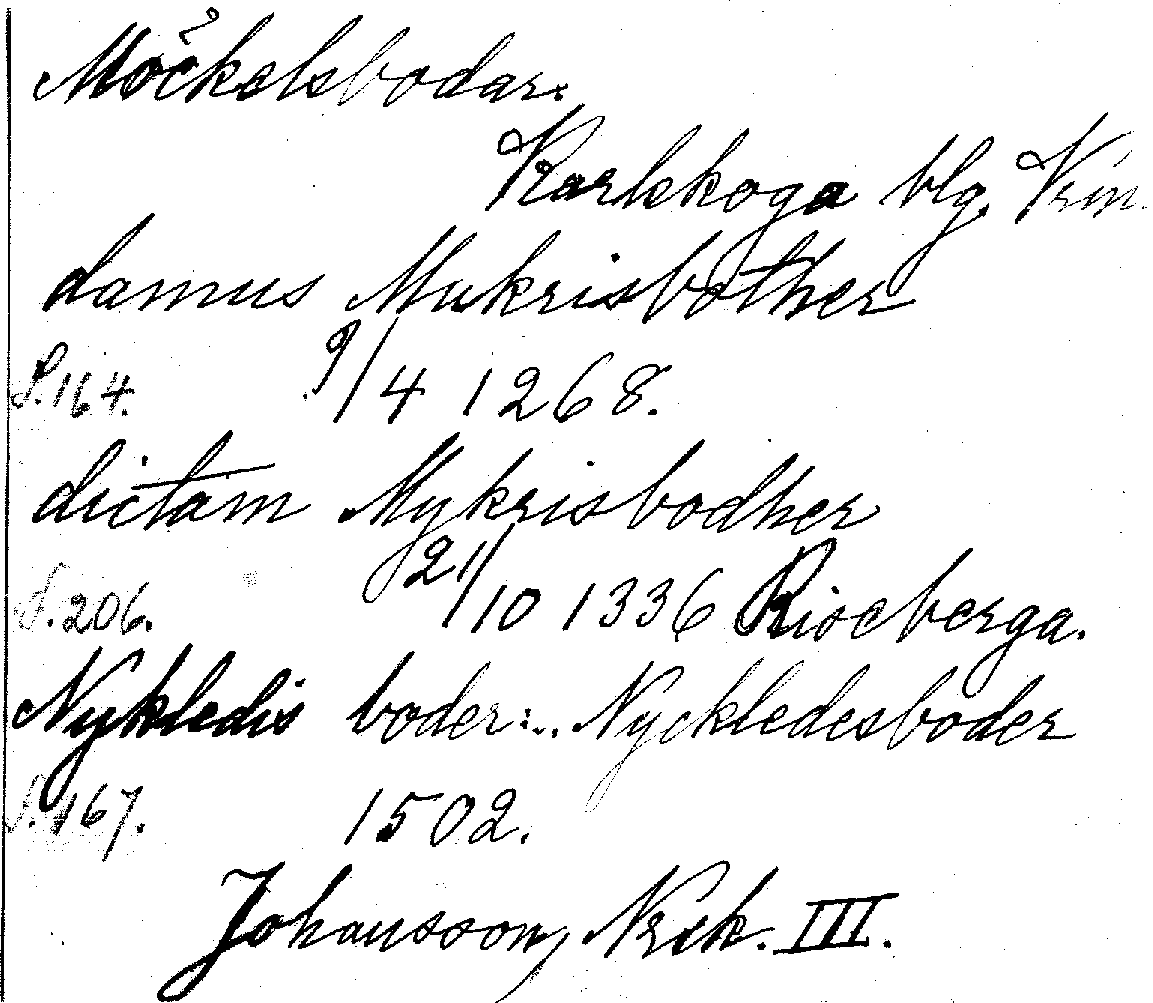 Möckelsbodar.
Karlskoga blg. Vrm.
damus Mukrisbother
S.164. 9/4 1268.
dictam Mykrisbodher
S.206. 21/10 1336 Riseberga.
Nykledis boder:.. Nyckledesboder
S.167. 1502.
Johansson, Nrik. III.